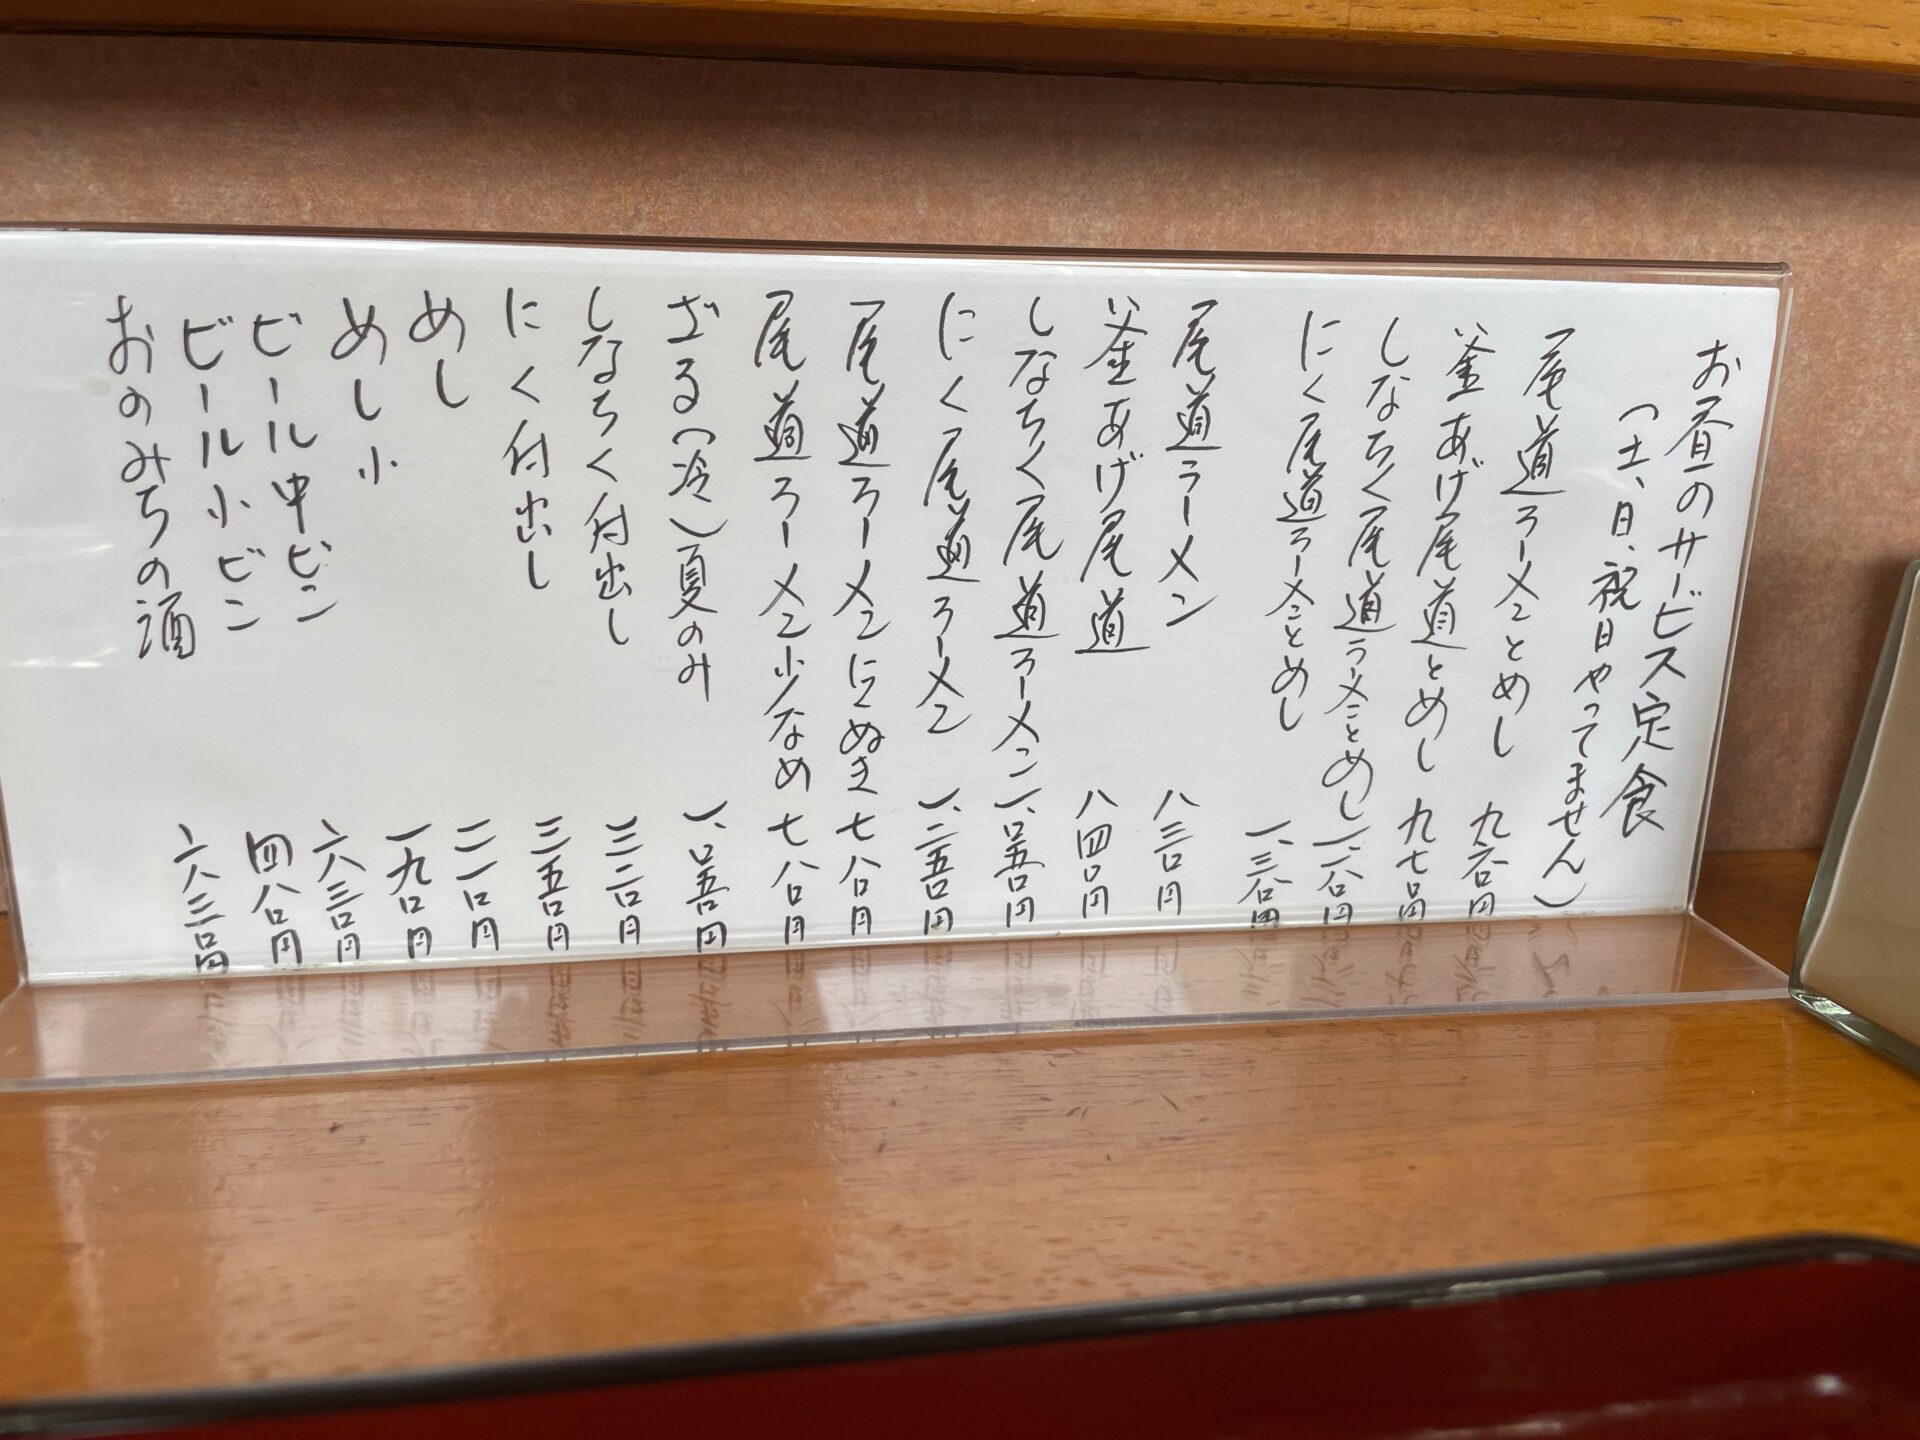 お昼のサービス定食
（土、日、祝日やってません）
尾道ラーメンとめし 九六〇円
釜あげ尾道とめし 九七〇円
しなちく尾道ラーメンとめし 一、一八〇円
にく尾道ラーメンとめし 一、三八〇円
尾道ラーメン 八三〇円
釜あげ尾道 八四〇円
しなちく尾道ラーメン 一、〇五〇円
にく尾道ラーメン 一、二五〇円
尾道ラーメンにくぬき 七八〇円
尾道ラーメン少なめ 七八〇円
ざる（冷）夏のみ 一、〇五〇円
しなちく付出し 三二〇円
にく付出し 三五〇円
めし 二一〇円
めし小 一九〇円
ビール中ビン 六三〇円
ビール小ビン 四八〇円
おのみちの酒 六三〇円